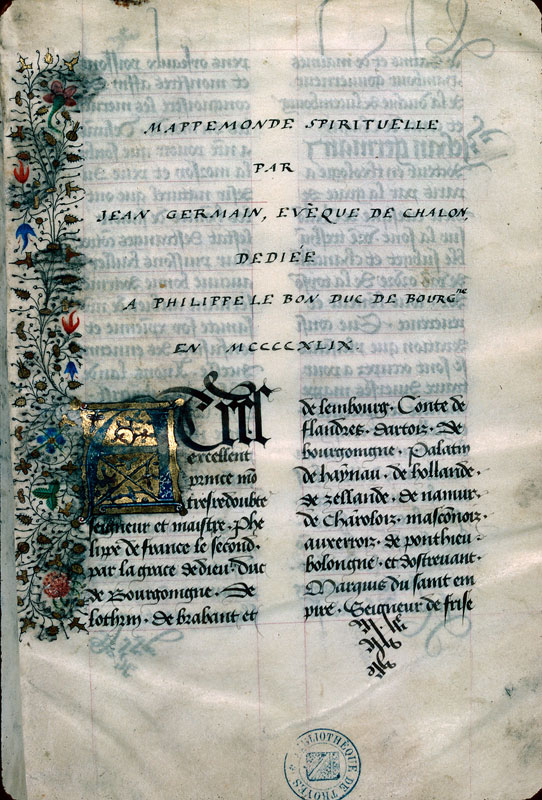 MAPPEMONDE SPIRITUELLE
PAR
JEAN GERMAIN, EVÈQUE DE CHALON,
DEDIÉE
A PHILIPPE LE BON DUC DE BOURG.ne
EN MCCCCXLIX.
Tres
excellent
prince mo
tresredoubte
seigneur et maistre. Phe
lippe de france le second.
par la grace de dieu. duc
de Bourgoingne. De
lothrin. de brabant et
de lembourg. Conte de
flandres. dartois. De
bourgoingne. Palatin
de haynau. de hollande.
de zellande. de namur.
de Charoloiz. masconoiz.
auxerroiz. de ponthieu.
bolongne. et dostrevant.
Marquis du saint em
pire. Seigneur de frise
BIBLIOTHEQUE DE TROYES